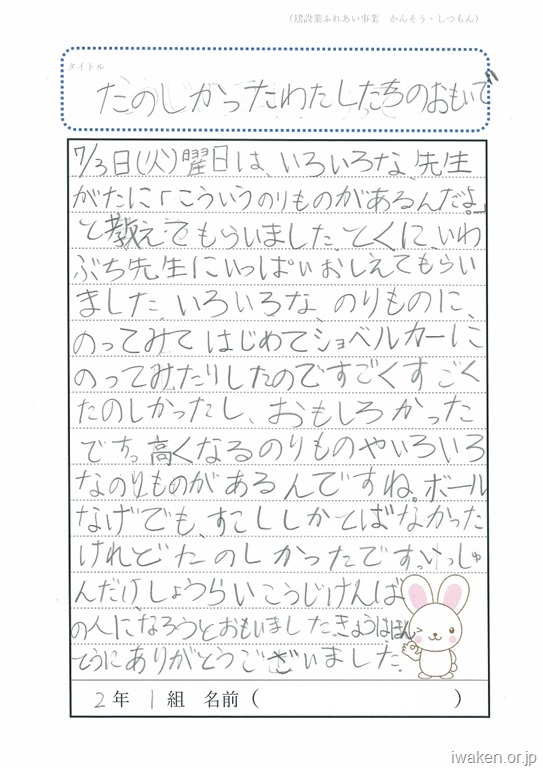 (建設業ふれあい事業　かんそう・しつもん)
タイトル
たのしかったわたしたちのおもいで
7/3日(火)曜日は、いろいろな、先生
がたに「こういうのりものがあるんだよ。」
と教えてもらいました、とくに、いわ
ぶち先生にいっぱいおしえてもらい
ました。いろいろな、のりものに、
のってみてはじめてショベルカーに
のってみたりしたのですごくすごく
たのしかったし、おもしろかった
です。高くなるのりものやいろいろ
なのりものがあるんですね。ボール
なげでも、すこししかとばなかった
けれどたのしかったです。いっしゅ
んだけしょうらいこうじけんば
の人になろうとおもいました。きょうはほん
とうにありがとうございました。
2年 1組 名前( )
iwaken.or.jp